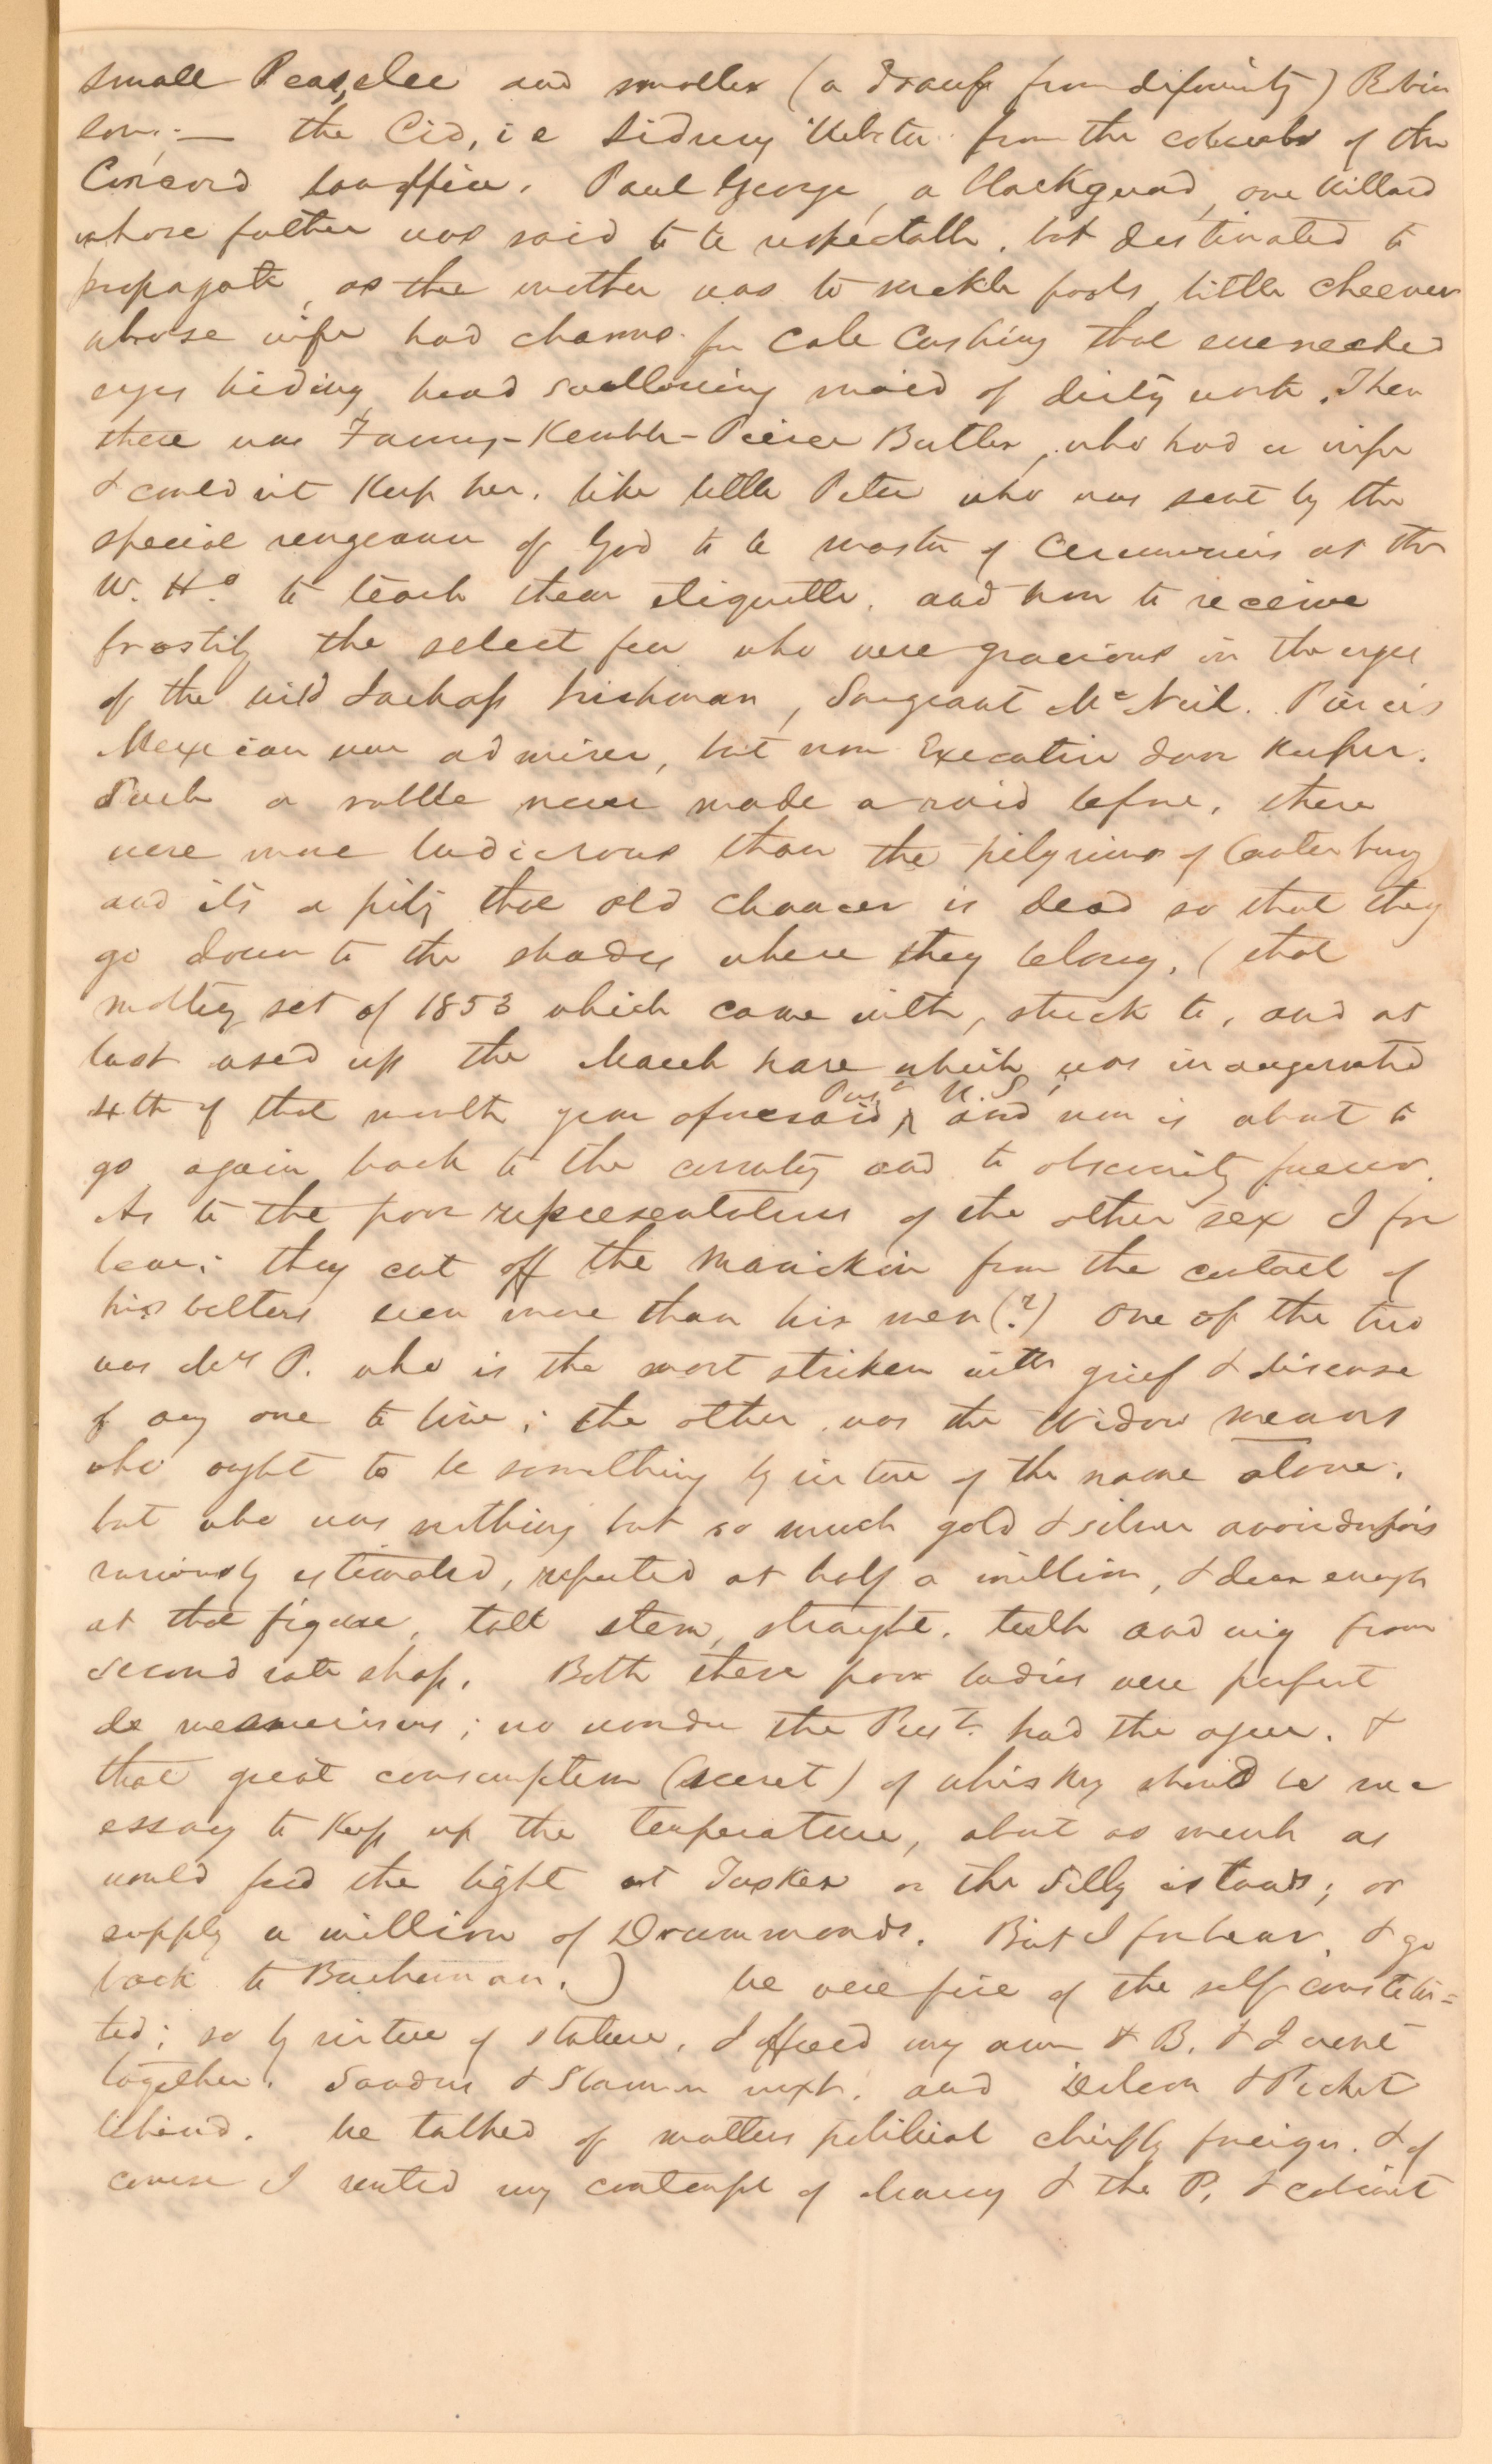 small Peaslee and smaller (a dwarf from deformity) Robin
son; — the Cid, i e Sidney Webster from the cobwebs of the
Concord law office. Paul George, a blackguard, one Willard
whose father was said to be respectable, but destinated to
propagate, as the mother was to suckle fools, little Cheever
whose wife had charms for Cale Cushing that
eyes hiding, head swallowing maid of dirty work. Then
there was Fanny-Kemble-Peirce Butler, who had a wife
& could nt keep her, like little Peter who was sent by the
special vengeance of God to be master of Ceremonies at the
W. Ho to teach them etiquette, and how to receive
frostily the select few who were gracious in the eyes
of the wild Irishman, Sargeant McNeil. Pierce's
Mexican war admirer, but now Executive door keeper.
Such a rabble never made a raid before, these
were more ludicrous than the pilgrims of Canterbury
and its a pity that old Chaucer is dead so that they
go down to the shades where they belong. (that
motley set of 1853 which came with, stuck to, and at
last used up the March hare which was inaugurated
4th of that month year aforesaid, Prest U.S. and now is about to
go again back to the country and to obscurity forever.
As to the poor representatives of the other sex I for
bear; they cut off the Manickin from the contact of
his betters even more than his men (?) One of the two
was Mrs P. who is the most striken with grief & disease
of any one to live; the other was the Widow Means
who ought to be something by virtue of the name alone,
but who was nothing but so much gold & silver avoirdupois
variously estimated, reputed at half a million, & dear enough
at that figure, tall stern, straight, teeth and wig from
second rate shop. Both these poor ladies were perfect
de mesmerisers; no wonder the Prest. had the ague. &
that great consumption (secret) of whisky should be nec
essary to keep up the temperature, about as much as
would feed the light at Tusker or the Silly islands; or
supply a million of Drummonds. But I forbear, & go
back to Buchanan.) We were five of the self constitu=
ted; so by virtue of stature, I offered my arm & B. & I went
together. Sanders & next. and & Picket
behind. We talked of matters political chiefly foreign. & of
course I vented my contempt of Marcy & the P. & cabinet